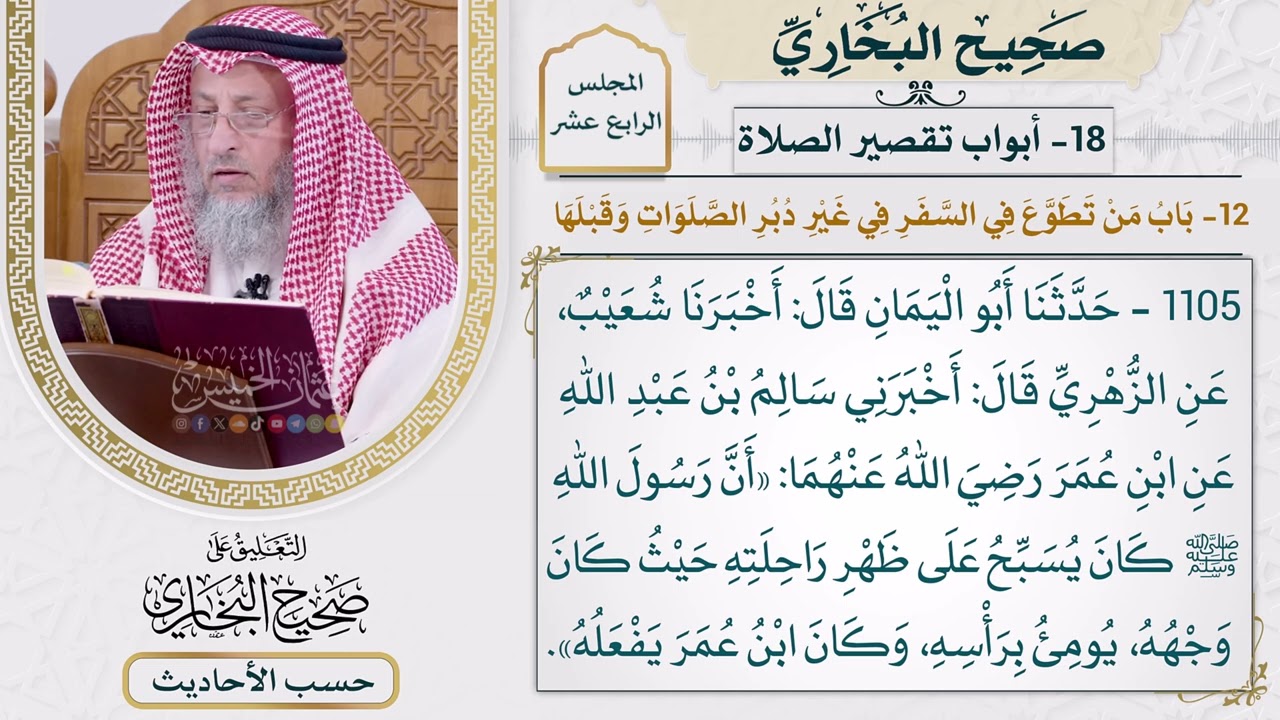 صَحِيح البُخَارِيِّ
المجلس
الرابع عشر
18- أبواب تقصير الصلاة
12- بَابُ مَنْ تَطَوَّعَ فِي السَّفَرِ فِي غَيْرِ دُبُرِ الصَّلَوَاتِ وَقَبْلَهَا
1105 - حَدَّثَنَا أَبُو الْيَمَانِ قَالَ: أَخْبَرَنَا شُعَيْبٌ،
عَنِ الزُّهْرِيِّ قَالَ: أَخْبَرَنِي سَالِمُ بْنُ عَبْدِ اللهِ
عَنِ ابْنِ عُمَرَ رَضِيَ اللهُ عَنْهُمَا: «أَنَّ رَسُولَ اللهِ
ﷺ كَانَ يُسَبِّحُ عَلَى ظَهْرِ رَاحِلَتِهِ حَيْثُ كَانَ
وَجْهُهُ، يُومِئُ بِرَأْسِهِ، وَكَانَ ابْنُ عُمَرَ يَفْعَلُهُ».
عثمان الخميس
التَّعْلِيقُ عَلَى
صَحِيحِ البُخَارِي
حسب الأحاديث